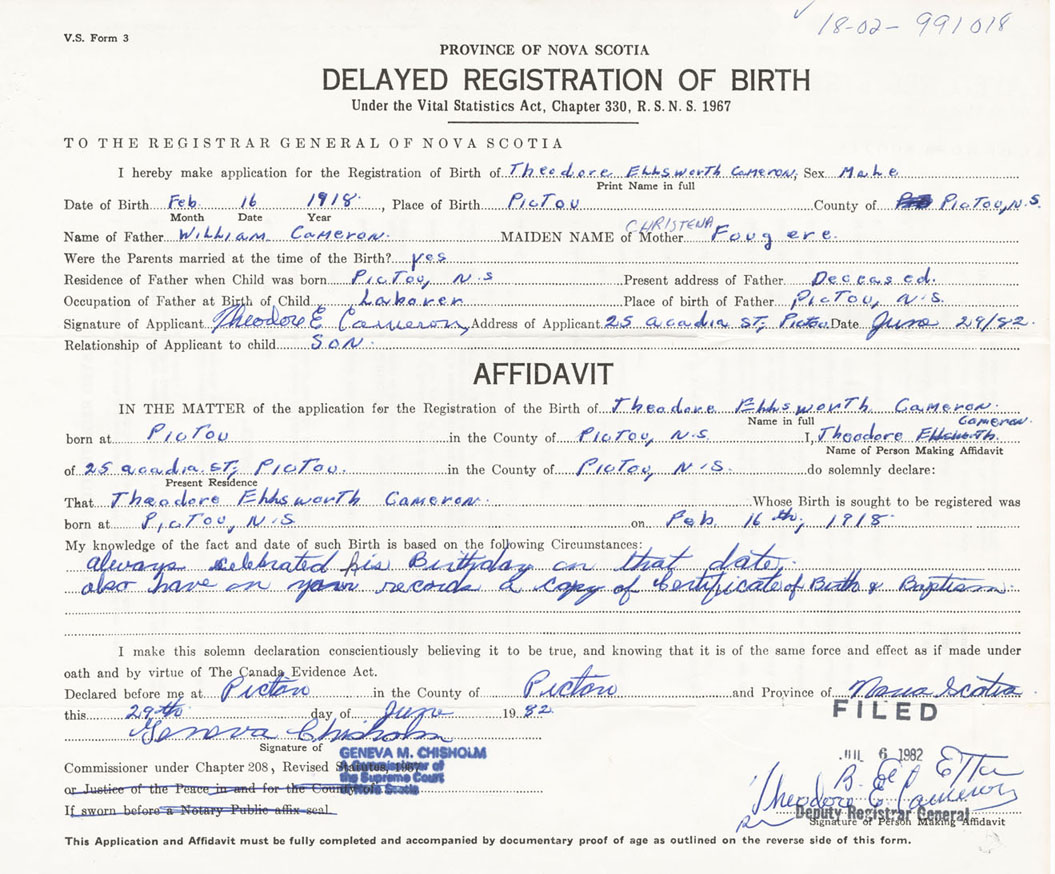 18-02-991018
V.S. Form 3
PROVINCE OF NOVA SCOTIA
DELAYED REGISTRATION OF BIRTH
Under the Vital Statistics Act, Chapter 330, R.S.N.S. 1967
TO THE REGISTRAR GENERAL OF NOVA SCOTIA
I hereby make application for the Registration of Birth of Theodore Ellsworth Cameron, Sex Male
Print Name in full
Date of Birth Feb. 16 1918, Place of Birth Pictou County of Pictou, N.S.
Month Date Year
CHRISTENA
Name of Father William Cameron. MAIDEN NAME of Mother Fougere.
Were the Parents married at the time of the Birth? yes
Residence of Father when Child was born Pictou, N.S Present address of Father Deceased.
Occupation of Father at Birth of Child Laborer Place of birth of Father Pictou, N.S.
Signature of Applicant Theodore E Cameron, Address of Applicant 25 acadia ST, Pictou Date June 29/82.
Relationship of Applicant to child SON.
AFFIDAVIT
IN THE MATTER of the application for the Registration of the Birth of Theodore Ellsworth Cameron.
Name in full Cameron.
born at Pictou in the County of Pictou, N.S. I, Theodore Ellsworth.
Name of Person Making Affidavit
of 25 acadia ST, Pictou. in the County of Pictou, N.S. do solemnly declare:
Present Residence
That Theodore Ellsworth Cameron. Whose Birth is sought to be registered was
born at Pictou, N.S on Feb. 16th, 1918.
My knowledge of the fact and date of such Birth is based on the following Circumstances:
always celebrated his Birthday on that date.
also have in your records a copy of Certificate of Birth & Baptism
I make this solemn declaration conscientiously believing it to be true, and knowing that it is of the same force and effect as if made under
oath and by virtue of The Canada Evidence Act.
Declared before me at Pictou in the County of Pictou and Province of Nova Scotia
this 29th day of June 1982
FILED
Geneva Chisholm
Signature of
GENEVA M. CHISHOLM
A Commissioner of
the Supreme Court
JUL 6 1982
Commissioner under Chapter 208, Revised Statutes, 1967
or Justice of the Peace in and for the County of
If sworn before a Notary Public affix seal.
Theodore E Cameron
Deputy Registrar General
Signature of Person Making Affidavit
This Application and Affidavit must be fully completed and accompanied by documentary proof of age as outlined on the reverse side of this form.